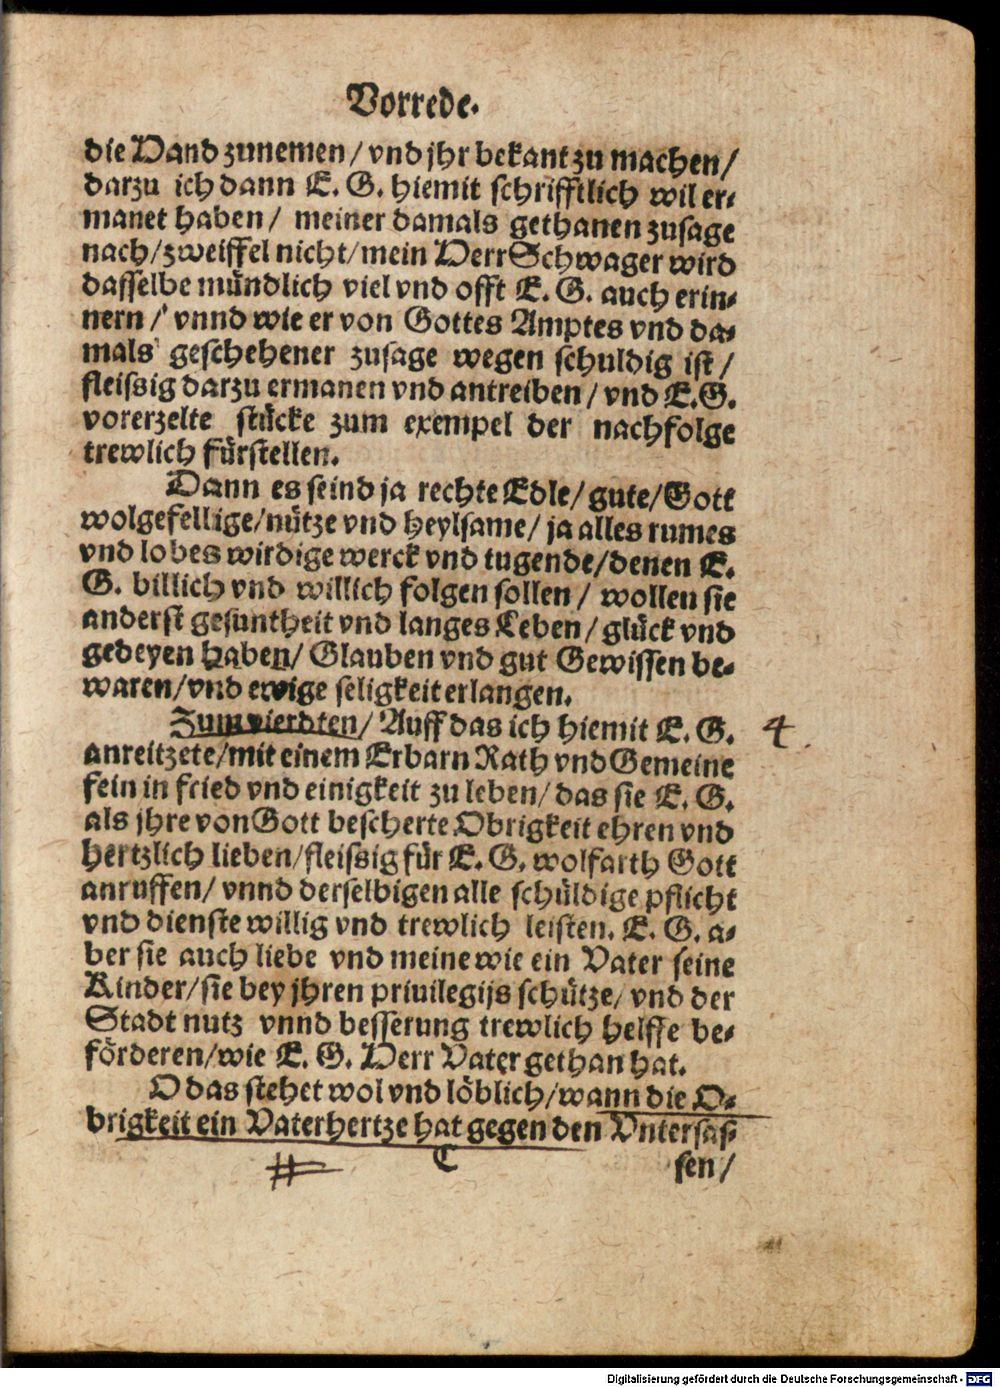 Vorrede.
die Hand zunemen / vnd jhr bekant zu machen /
darzu ich dann E. G. hiemit schrifftlich wil er-
manet haben / meiner damals gethanen zusage
nach / zweiffel nicht / mein Herr Schwager wird
dasselbe mündlich viel vnd offt E. G. auch erin-
nern / vnnd wie er von Gottes Amptes vnd da-
mals geschehener zusage wegen schuldig ist /
fleissig darzu ermanen vnd antreiben / vnd E. G.
vorerzelte stücke zum exempel der nachfolge
trewlich fürstellen.
Dann es seind ja rechte Edle / gute / Gott
wolgefellige / nütze vnd heylsame / ja alles rumes
vnd lobes wirdige werck vnd tugende / denen E.
G. billich vnd willich folgen sollen / wollen sie
anderst gesuntheit vnd langes Leben / glück vnd
gedeyen haben / Glauben vnd gut Gewissen be-
waren / vnd ewige seligkeit erlangen.
Zum vierdten / Auff das ich hiemit E. G. 4.
anreitzete / mit einem Erbarn Rath vnd Gemeine
fein in fried vnd einigkeit zu leben / das sie E. G.
als jhre von Gott bescherte Obrigkeit ehren vnd
hertzlich lieben / fleissig für E. G. wolfarth Gott
anruffen / vnnd derselbigen alle schüldige pflicht
vnd dienste willig vnd trewlich leisten. E. G. a-
ber sie auch liebe vnd meine wie ein Vater seine
Kinder / sie bey jhren priuilegijs schütze / vnd der
Stadt nutz vnnd besserung trewlich helffe be-
förderen / wie E. G. Herr Vater gethan hat.
O das stehet wol vnd löblich / wann die O-
brigkeit ein Vaterhertze hat gegen den Vntersas-
C sen /
Digitalisierung gefördert durch die Deutsche Forschungsgemeinschaft - DFG